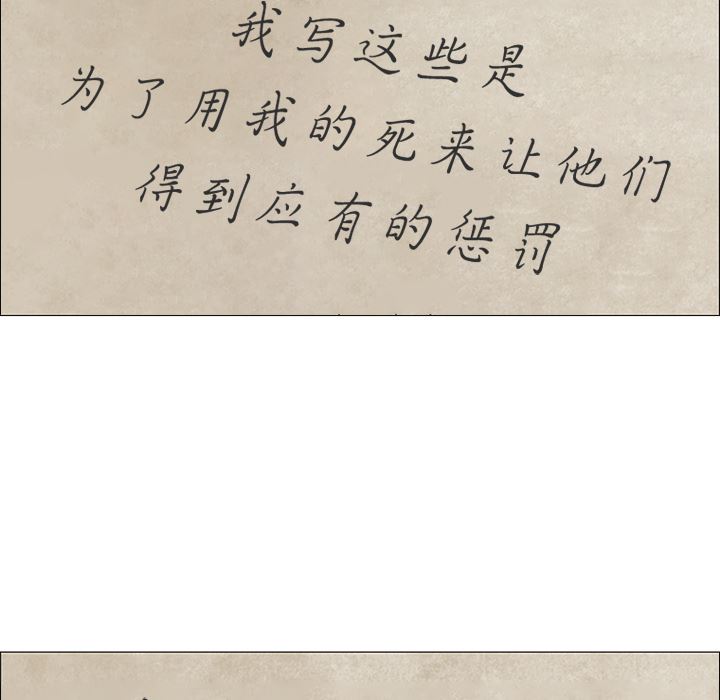 我写这些是
为了用我的死来让他们
得到应有的惩罚